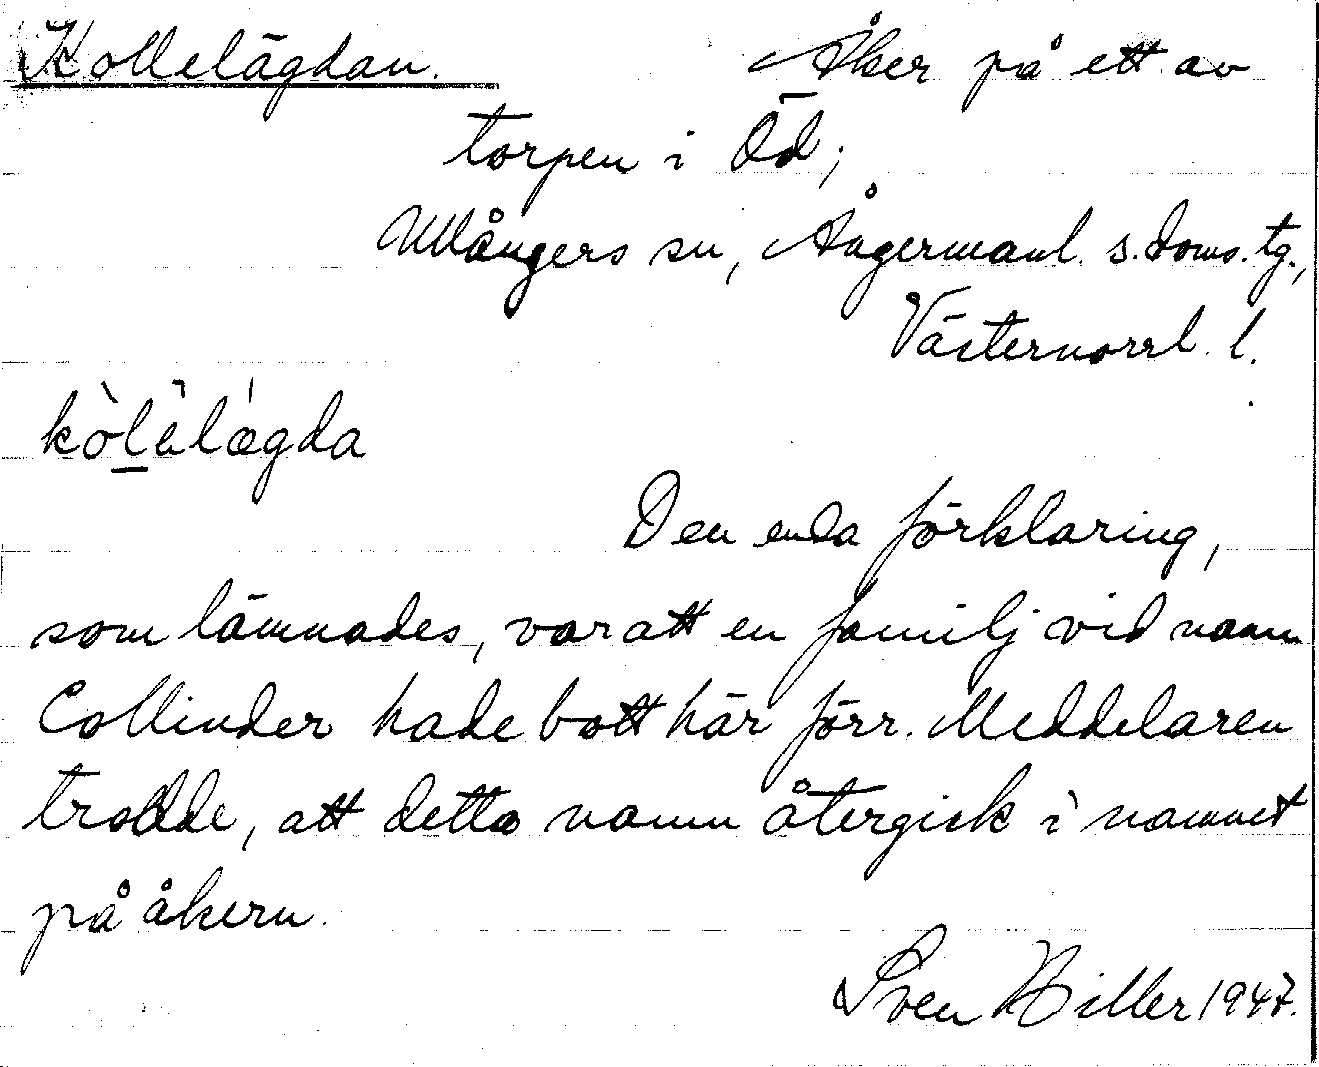 Kollelägdan. Åker på ett av
torpen i Öd;
Ullångers sn, Ångermanl. s. doms. tg.,
Västernorrl. l.
kòlèlægda
Den enda förklaring,
som lämnades, var att en familj vid namn
Collinder hade bott här förr. Meddelaren
trodde, att detta namn återgick i namnet
på åkern.
Sven Hiller 1947.